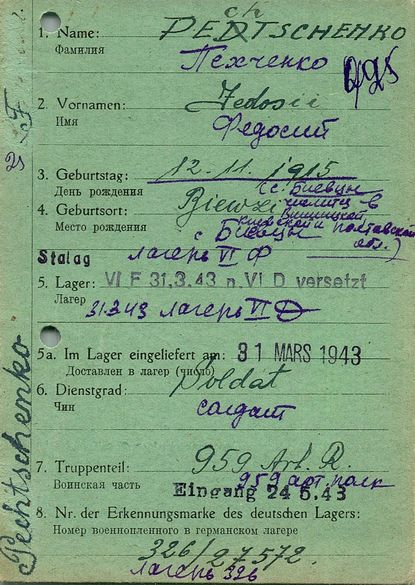 ch
1. Name: PEDTSCHENKO
Фамилия
Пехченко
2. Vornamen: Fedosii
Имя
Федосий
3. Geburtstag: 12.11.1915
День рождения
(с. Биевцы
4. Geburtsort: Biewzi
Место рождения
Киевской и Полтавской
с. Биевцы обл.)
лагерь VI Ф
Stalag
5. Lager: VI F 31.3.43 n. VI D versetzt
Лагер
31.3.43 лагерь VI D
5a. Im Lager eingeliefert am: 31 MARS 1943
Доставлен в лагер (число)
6. Dienstgrad: Soldat
Чин
солдат
7. Truppenteil: 959 Art. R.
Воинская часть
959 арт. полк
Eingang 24.5.43
8. Nr. der Erkennungsmarke des deutschen Lagers:
Номер военнопленного в германском лагере
326/27572
лагерь 326
Pechtschenko